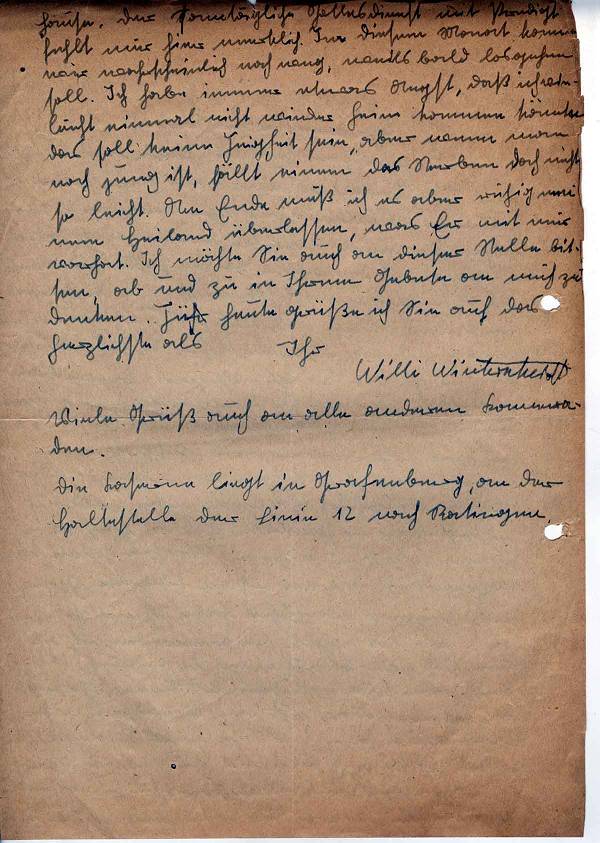 hause. Der sonntägliche Gottesdienst mit Predigt
fehlt mir hier merklich. In diesem Monat kommen
wir wahrscheinlich noch weg, weils bald losgehen
soll. Ich habe immer etwas Angst, daß ich viel-
leicht einmal nicht wieder heim kommen könnte
das soll keine Feigheit sein, aber wenn man
noch jung ist, fällt einem das Sterben doch nicht
so leicht. Am Ende muß ich es aber ruhig mei
nem Heiland überlassen, was Er mit mir
vorhat. Ich möchte Sie auch an dieser Stelle bit-
ten, ab und zu in Ihrem Gebete an mich zu
denken. Für heute grüße ich Sie auf das
herzlichste als Ihr
Willi
Viele Grüß auch an alle anderen Kamera-
den.
Die Kaserne liegt in Grafenberg, an der
Haltestelle der Linie 12 nach Ratingen.